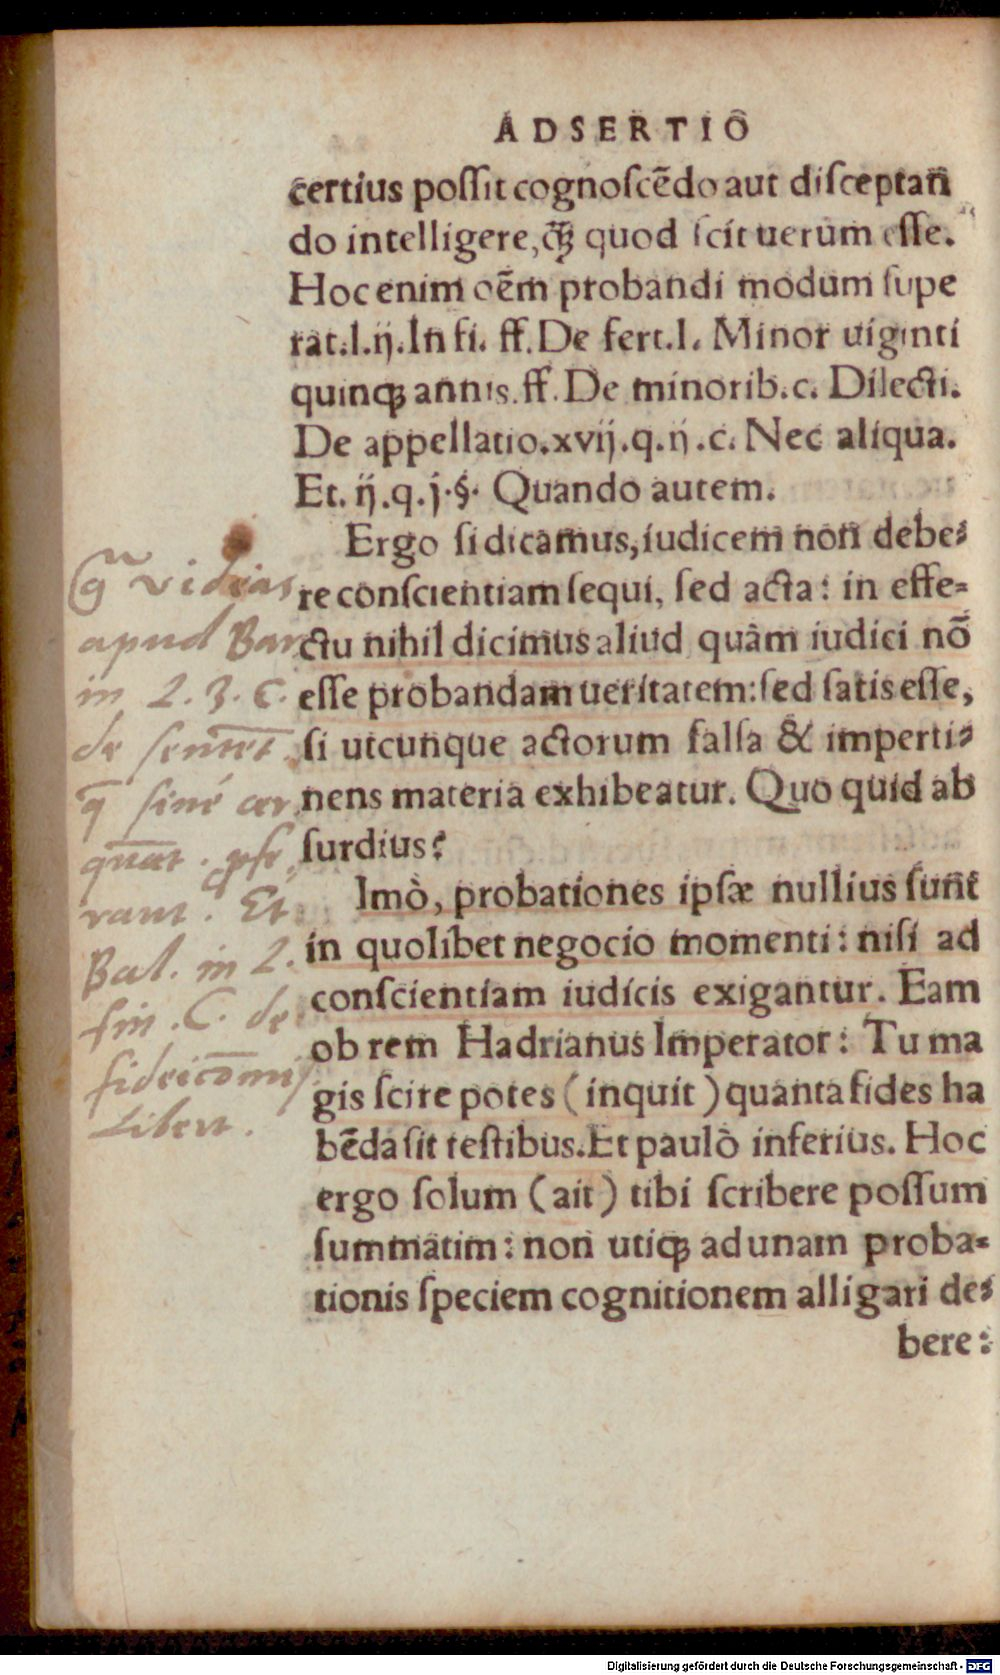 ADSERTIO
certius poſſit cognoſcēdo aut diſceptan
do intelligere, q̃ꝫ quod ſcit uerum eſſe.
Hoc enim oēm probandi modum ſupe
rat.l.ij.In fi. ff.De fert.l. Minor uiginti
quinqꝫ annis.ff.De minorib.c. Dilecti.
De appellatio.xvij.q.ij.c. Nec aliqua.
Et.ij.q.j.§. Quando autem.
Ergo ſi dicamus, iudicem non debe-
re conſcientiam ſequi, ſed acta: in effe-
ctu nihil dicimus aliud quàm iudici nõ
eſſe probandam ueritatem: ſed ſatis eſſe,
ſi utcunque actorum falſa & imperti-
nens materia exhibeatur. Quo quid ab
ſurdius?
Imò, probationes ipſæ nullius ſunt
in quolibet negocio momenti: niſi ad
conſcientiam iudicis exigantur. Eam
ob rem Hadrianus Imperator: Tu ma
gis ſcire potes (inquit) quanta fides ha
bēda ſit teſtibus. Et paulò inferius. Hoc
ergo ſolum (ait) tibi ſcribere poſſum
ſummatim: non utiqꝫ ad unam proba-
tionis ſpeciem cognitionem alligari de-
bere:
vidias
apud Bar
in L. 3. C.
de
ſine cer
quat.
rant. Et
Bal. in L.
fin. C. de
fideicōmiſ
Libert.
Digitalisierung gefördert durch die Deutsche Forschungsgemeinschaft - DFG